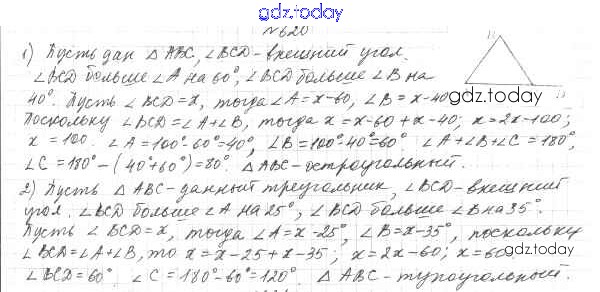 gdz.today
№620
1) Пусть дан △ ABC, ∠BCD - внешний угол.
∠BCD больше ∠A на 60°, ∠BCD больше ∠B на
40°. Пусть ∠BCD = x, тогда ∠A = x-60, ∠B = x-40
gdz.today
Поскольку ∠BCD = ∠A+∠B, тогда x = x-60 + x-40; x = 2x-100;
x = 100. ∠A = 100°-60°=40°, ∠B = 100°-40°=60° ∠A+∠B+∠C = 180°,
∠C = 180° - (40°+60°) = 80°. △ABC - остроугольный.
2) Пусть △ ABC - данный треугольник, ∠BCD - внешний
угол. ∠BCD больше ∠A на 25°, ∠BCD больше ∠B на 35°.
Пусть ∠BCD = x, тогда ∠A = x-25°, ∠B = x-35°, поскольку
gdz.today
∠BCD = ∠A+∠B, то x = x-25 + x-35; x = 2x-60; x = 60
∠BCD = 60° ∠C = 180°-60°=120°. △ ABC - тупоугольный.